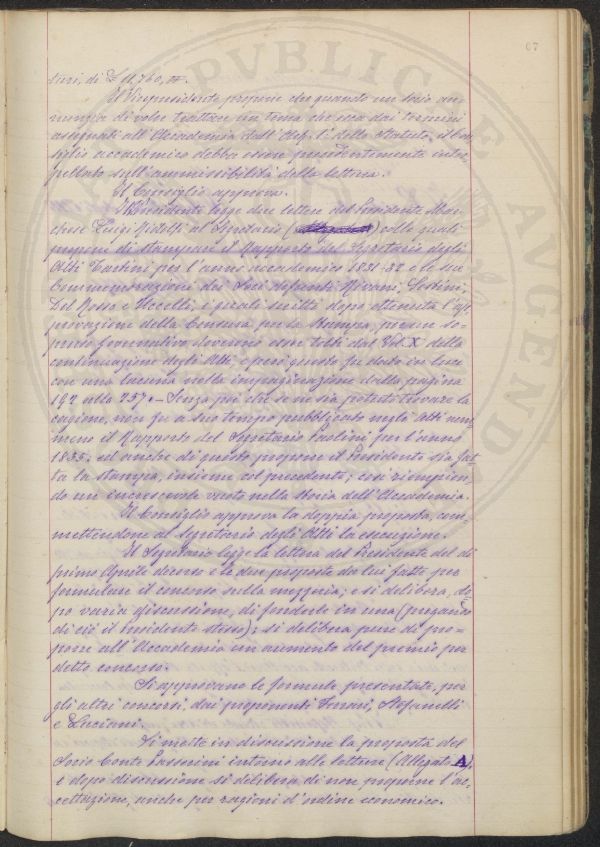 67
tieri, di £ 11,760,00.
Il Vicepresidente propone che quando un socio an-
nunzia di voler trattare un tema che esca dai termini
assegnati all'Accademia dall'Art. 1.° dello Statuto, il Con-
siglio accademico debba essere precedentemente inter-
pellato sull'ammissibilità della lettura.
Il Consiglio approva.
Il Presidente legge due lettere del Presidente Mar-
chese Luigi Ridolfi al Segretario colle quali
propone di stampare il Rapporto del Segretario degli
Atti Tartini per l'anno accademico 1831-32 e le sue
Commemorazioni dei Soci defunti Rivani, Sestini,
Del Rosso e Uccelli, i quali scritti dopo ottenuta l'ap-
provazione della Censura per la Stampa, pressa so-
praso formativo dovevano esser tolti dal Vol. X della
continuazione degli Atti, e però questo fu dato in luce
con una lacuna nella impaginazione dalla pagina
192 alla 257. – Senza poi che se ne sia potuta trovare la
cagione, non fu a suo tempo pubblicato negli Atti nem
meno il Rapporto del Segretario Paolini per l'anno
1835. ed anche di questo propone il Presidente sia fat-
ta la stampa, insieme col precedente; così riempien-
do un increscevole vuoto nella storia dell'Accademia.
Il Consiglio approva la doppia proposta, com-
mettendone al Segretario degli Atti la esecuzione.
Il Segretario legge la lettera del Presidente del dì
primo Aprile decorso e le due proposte da lui fatte per
formulare il concorso sulla mezzeria; e si delibera, do-
po varia discussione, di fonderle in una (pregando
di ciò il Presidente stesso); si delibera pure di pro-
porre all'Accademia un aumento del premio per
detto concorso.
Si approvano le formule presentate, per
gli altri concorsi, dai proponenti Ferrari, Stefanelli
e Luciani.
Si mette in discussione la proposta del
Socio Conte Passerini intorno alle lettere (Allegato A),
e dopo discussione si delibera di non proporne l'ac-
cettazione, anche per ragioni d'ordine economico.